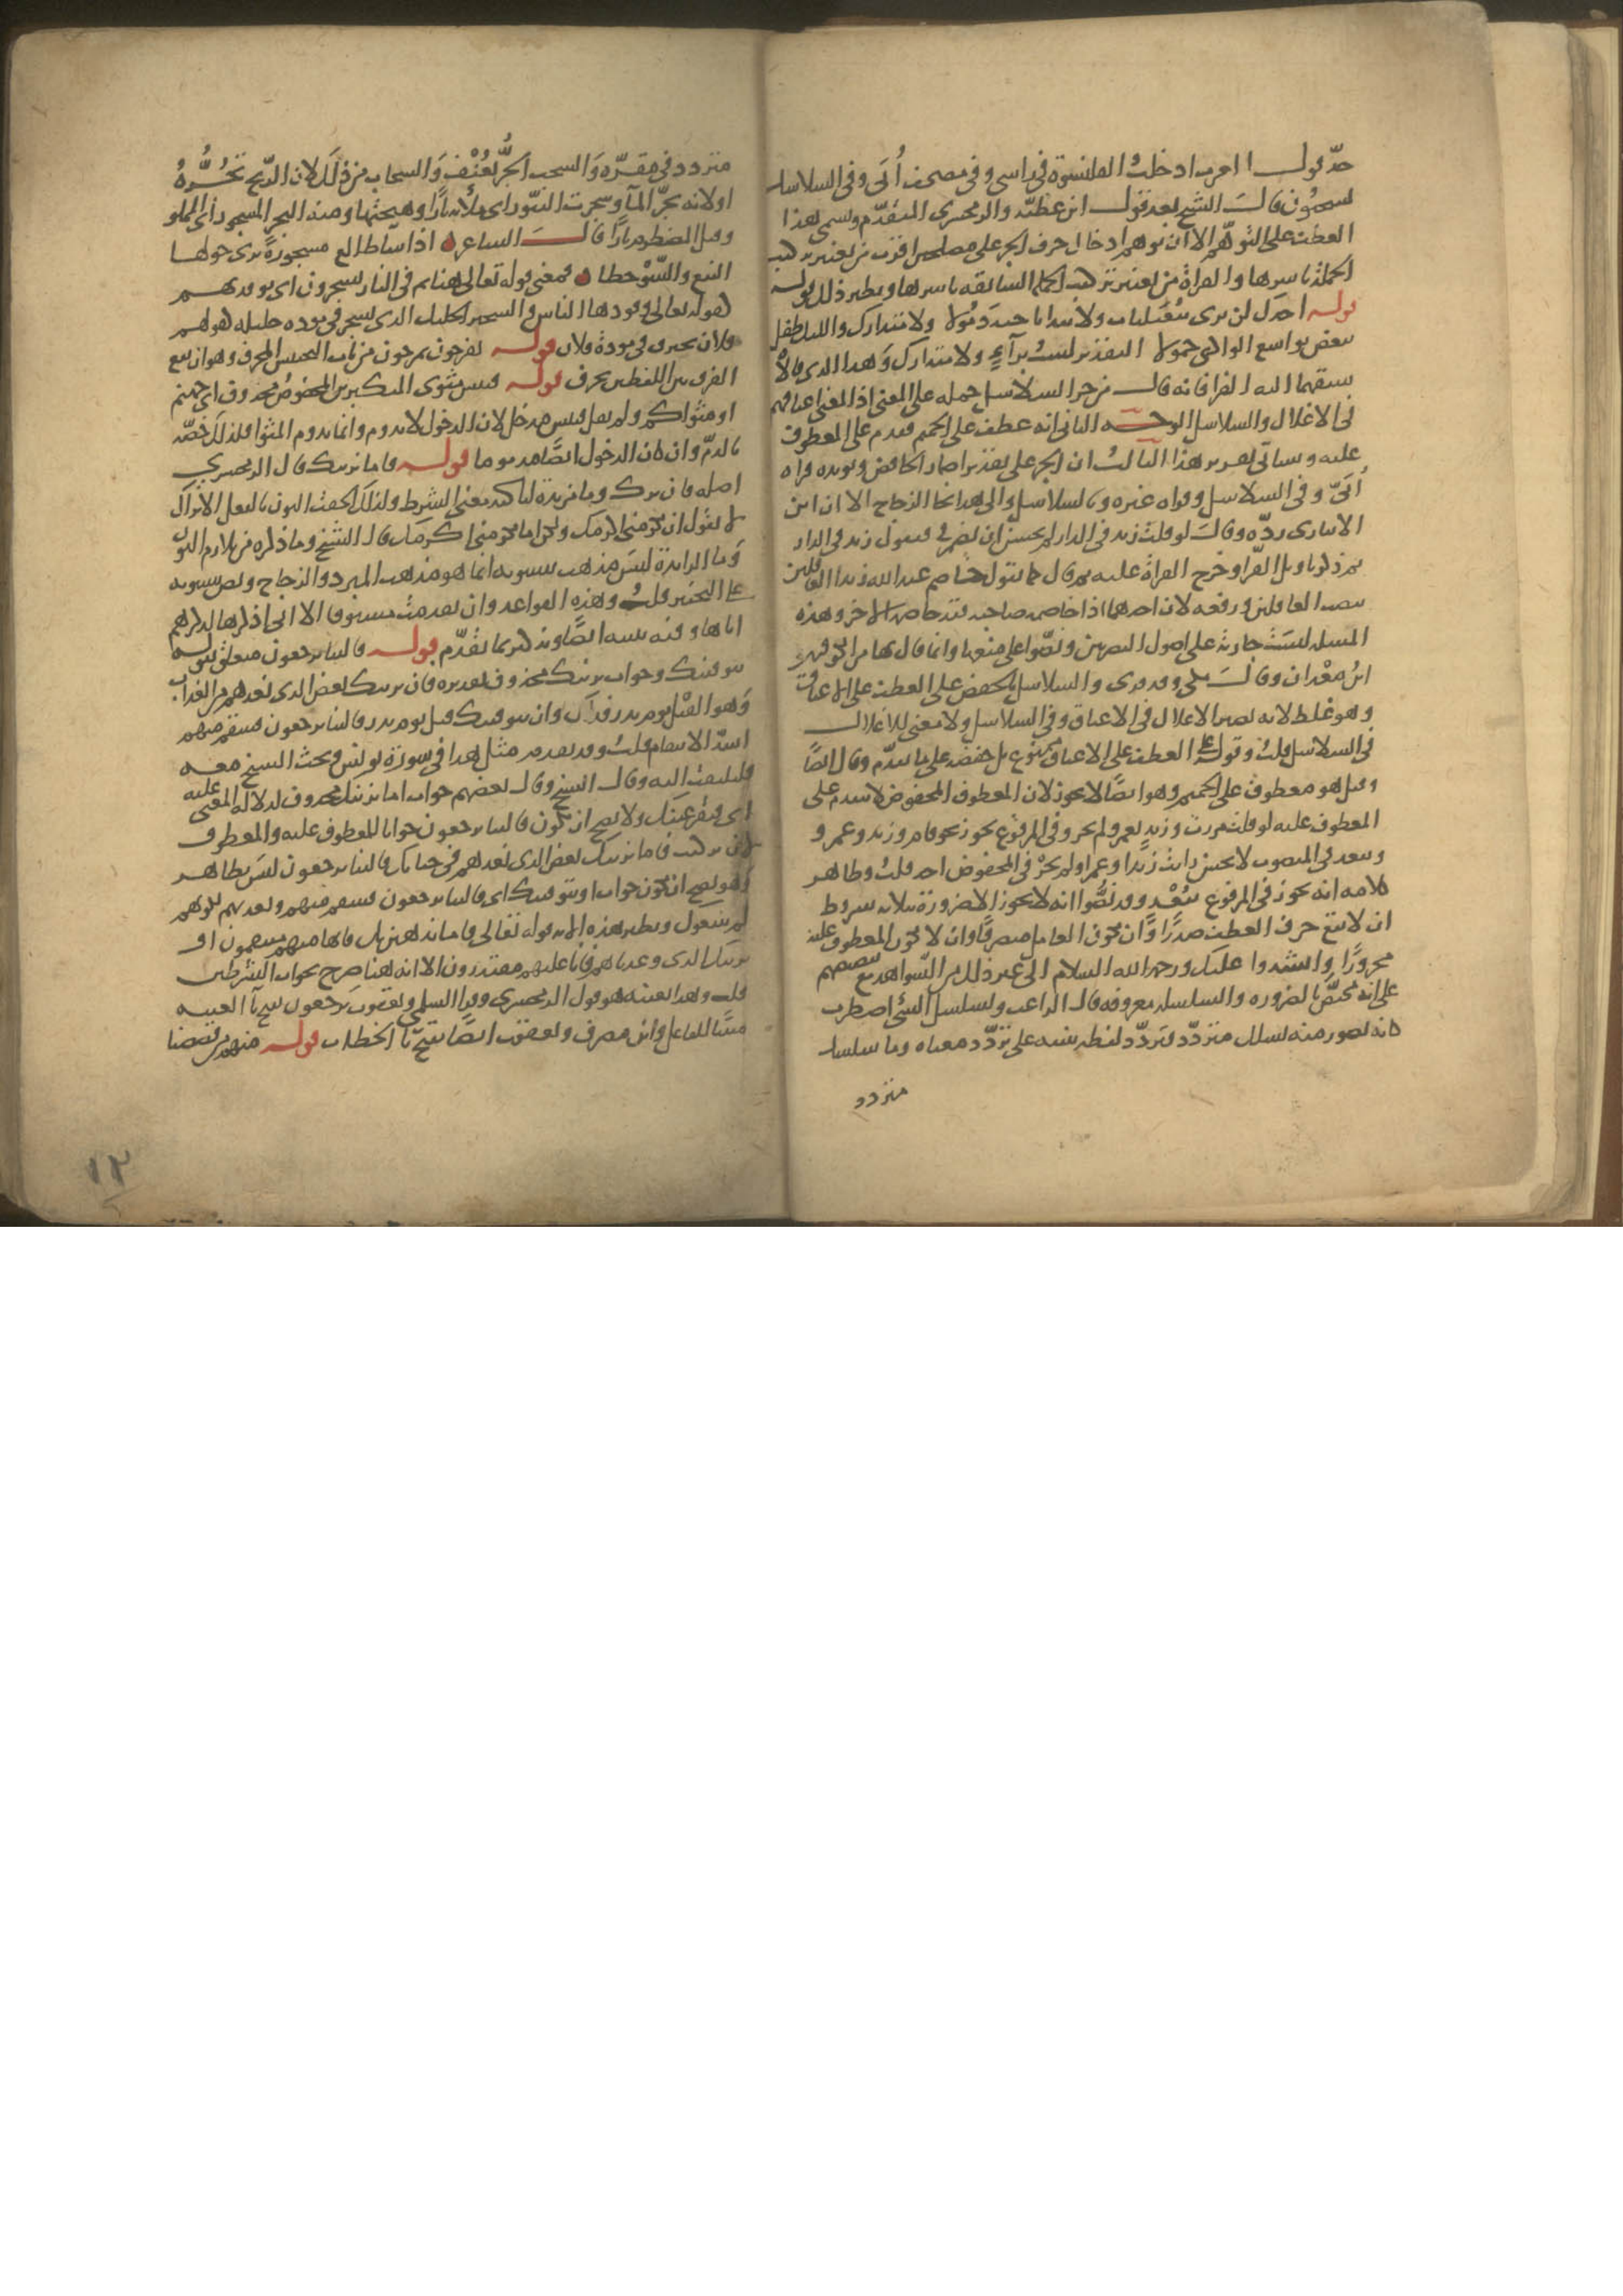 حدّ قول العرب ادخلت القلنسوة في راسي وفي مصحف أُبَي وفي السلاسل
يسحبون قال الشيخ بعد قول ابن عطيّة والزمخشري المتقدّم ويسمى هذا
العطف على التوهّم الا ان توهم ادخال حرف الجر على مصلحين اقرب من تغيير تركيب
الجملة باسرها والقراة من تغيير تركيب الجملة السابقة باسرها ونظير ذلك قوله
قوله اجدك لن ترى بثعيلبات ولا بيدان ناجية ذمولا ولا متدارك والليل طفل
ببعض نواشع الوادي حمولا التقدير لست براءٍ ولا متدارك وهذا الذي قالاه
سبقهما اليه الفرا فانه قال من جر السلاسل حمله على المعنى اذ المعنى اعناقهم
في الاغلال والسلاسل الوجه الثاني انه عطف على الحميم فقدم على المعطوف
عليه وسياتي تقرير هذا الثالث ان الجر على تقدير اضمار الخافض ويؤيده قراة
أُبَيّ وفي السلاسل وقراه غيره وبالسلاسل والى هذا نحا الزجاج الا ان ابن
الانباري ردّه وقال لو قلت زيد في الدار لم يحسن ان تضمر في فتقول زيد الدار
ثم ذكر تاويل الفرا وخرج القراة عليه ثم قال كما تقول خاصم عبد الله زيدا العاقلين
بنصب العاقلين ورفعه لان احدهما اذا خاصم صاحبه فقد خاصمه الاخر وهذه
المسلة ليست جارية على اصول البصريين ونصّوا على منعها وانما قال بها من الكوفيين
ابن سعدان وقال مكي وقد قرى والسلاسل بالخفض على العطف على الاعناق
وهو غلط لانه يصير الاغلال في الاعناق وفي السلاسل ولا معنى للاغلال
في السلاسل قلت وقوله على العطف على الاعناق ممنوع بل خفضه على ما تقدّم وقال ايضا
وقيل هو معطوف على الحميم وهو ايضا لا يجوز لان المعطوف المخفوض لا يتقدم على
المعطوف عليه لو قلت مررت وزيدٍ بعمرو لم يجز وفي المرفوع يجوز نحو قام وزيد وعمرو
ويبعد في المنصوب لا يحسن رايت وزيدا وعمرا ولم يجزْ في المخفوض احد قلت وظاهر
كلامه انه يجوز في المرفوع ببُعْدٍ وقد نصُّوا انه لا يجوز الا ضرورة بثلاثة شروط
ان لا يقع حرف العطف صدرًا وأن يكون العامل متصرفًا وان لا يكون المعطوف عليه
مجرورًا وانشدوا عليك ورحمة الله السلام الى غير ذلك من الشواهد مع تنصيصهم
على انه مختصّ بالضرورة والسلسلة معروفة قال الراغب وتسلسل الشئ اضطرب
كانه تصور منه تسلل متردّد فتردّد لفظه تنبيه على تردّد معناه وما سلسل
متردد
متردد في مقرّه والسحب الجرُّ بعُنْف والسحاب من ذلك لان الريح تجُرُّهُ
او لانه يجرّ المآ وسجرت التنّور اى ملأته نارًا وهيجتها ومنه البحر المسجور أي المملو
وقيل المضطرم نارًا قال الشاعر اذا شآ طالع مسجورةً ترى حولها
النبع والسَّوْحطا فمعنى قوله تعالى هنا ثم في النار يسجرون اى يوقد بهم
كقوله تعالى وقودها الناس والسجير الخليل الذي يسجر في مودة خليله كقولهم
فلان يحترق في مودة فلان قوله تفرحون تمرحون من باب التجنيس المحرف وهو ان يقع
الفرق بين اللفظين بحرف قوله فبئس مثوى المتكبرين المخصوص محذوف اى جهنم
او مثواكم ولم يقل فبئس مدخل لان الدخول لا يدوم وانما يدوم المثوا فلذلك خصّه
بالذمّ وان كان الدخول ايضًا مذموما قوله فاما نرينك قال الزمخشري
اصله فان نرك وما مزيدة لتاكيد معنى الشرط ولذلك الحقت النون بالفعل الا تراك
لا تقول ان تكرمني اكرمك ولكن اما تكرمني اكرمك قال الشيخ وما ذكره من تلازم النون
وما الزايدة ليس مذهب سيبويه انما هو مذهب المبرد والزجاج ونص سيبويه
على التخيير قلت وهذه القواعد وان تقدمت مستوفاة الا اني اذكرها لذكرهم
اياها وفيه تنبيه ايضًا وتذكير بما تقدّم قوله فالينا يرجعون متعلق بقوله
نتوفينك وجواب نرينك محذوف تقديره فان نرينك بعض الذي نعدهم من العذاب
وهو القتل يوم بدر فذاك وان نتوفينك قبل يوم بدر فالينا يرجعون فننتقم منهم
اشدّ الانتقام قلت وقد تقدم مثل هذا في سورة يونس وبحث الشيخ معه
فليلتفت اليه وقال الشيخ وقال بعضهم جواب اما نرينك محذوف لدلالة المعنى عليه
اى فتقر عينك ولا يصح ان يكون فالينا يرجعون جوابا للمعطوف عليه والمعطوف
لان تركيب فاما نرينك بعض الذي نعدهم في حياتك فالينا يرجعون ليس بظاهر
وهو يصح ان يكون جواب او نتوفينك اى فالينا يرجعون فننتقم منهم ونعذبهم لكونهم
لم يتبعوك ونظير هذه الاية قوله تعالى فاما نذهبن بك فانا منهم منتقمون او
نرينك الذي وعدناهم فانا عليهم مقتدرون الا انه هنا صرح بجواب الشرطين
قلت وهذا بعينه هو قول الزمخشري وقرا السلمي ويعقوب يرجعون بفتح يآ الغيبة
مبنيًا للفاعل وابن مصرف ويعقوب ايضًا بفتح تا الخطاب قوله منهم من قصصنا
١٢